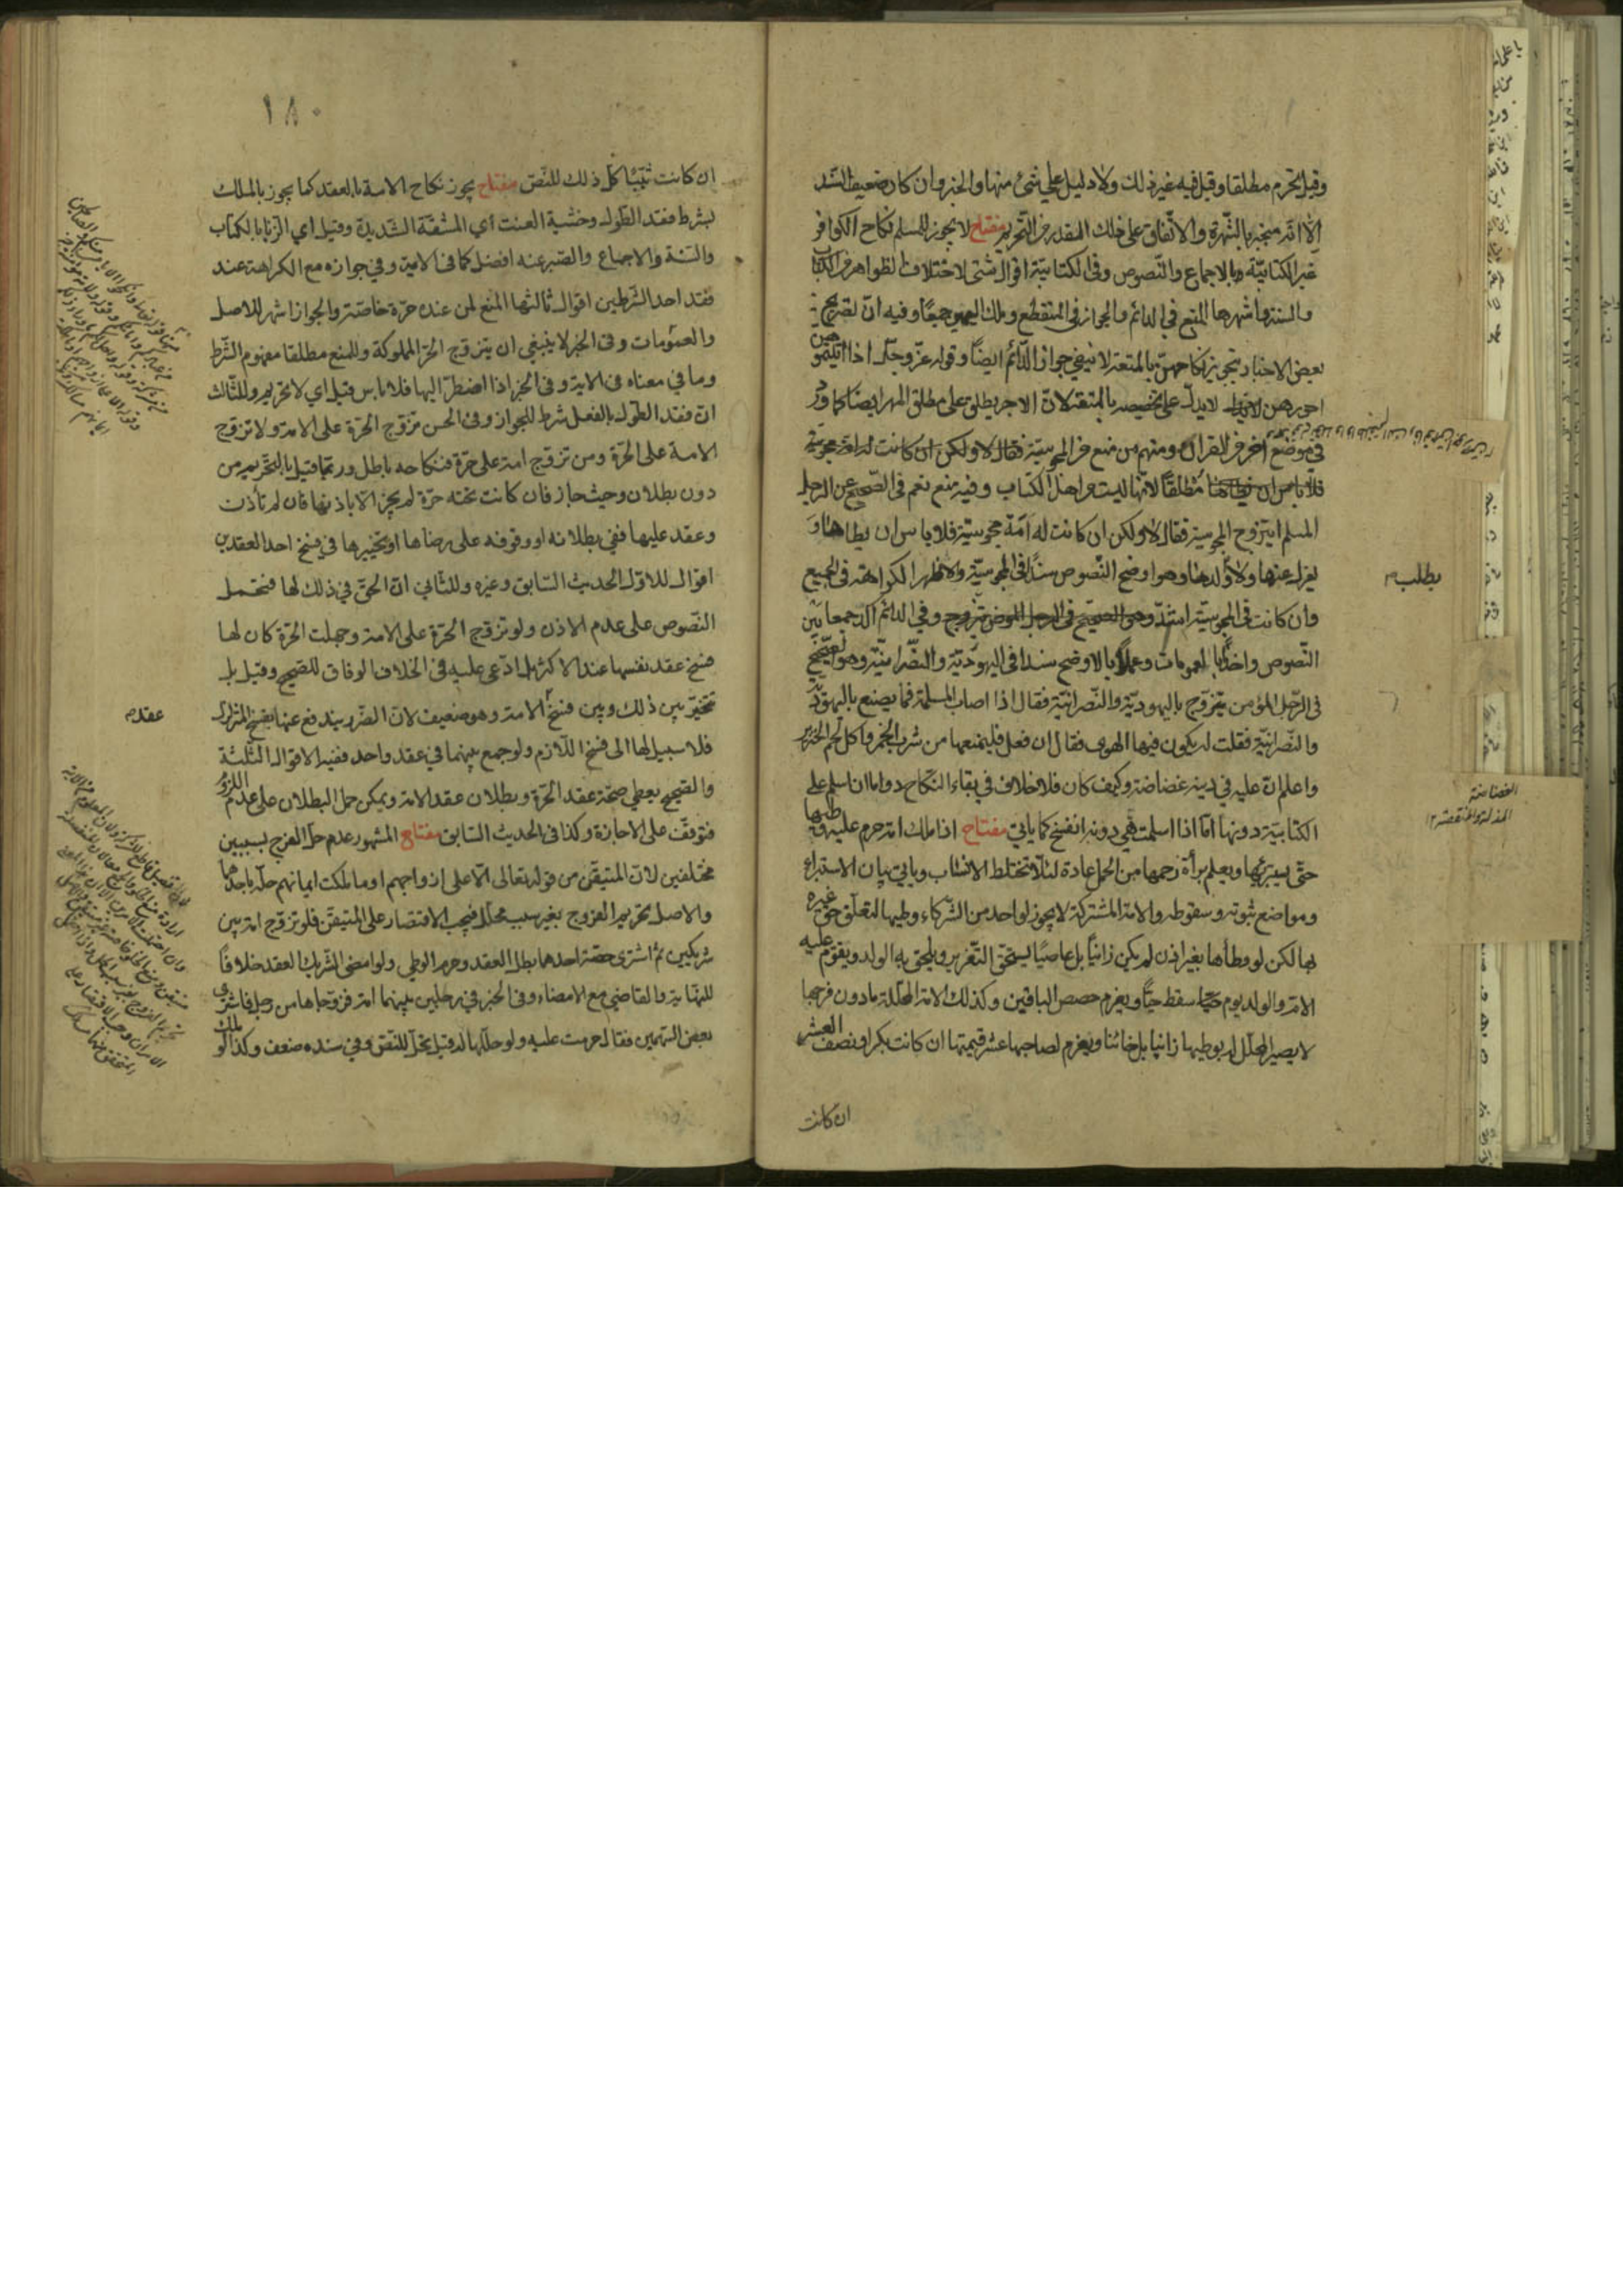 وقيل يحرم مطلقا وقيل فيه غير ذلك ولا دليل على شئ منها والخبر وان كان ضعيف السند
الا انه منجبر بالشهرة والاتفاق على ذلك المقدر من التحريم مفتاح لا يجوز للمسلم نكاح الكوافر
غير الكتابية بالاجماع والنصوص وفى الكتابية اقوال شتى لاختلاف ظواهر الكتاب
والسنة اشهرها المنع في الدائم والجواز في المنقطع وملك اليمين جميعا وفيه ان تصريح
بعض الاخبار بتجويز نكاحهن بالمتعة لا ينفي جواز الدائم ايضا وقوله عز وجل اذا اتيتموهن
اجورهن لا يدل على تخصيصه بالمتعة لان الاجر يطلق على مطلق المهر ايضا كما ورد
في موضع اخر من القرآن ومنهم من منع من المجوسية
مطلقا لانها ليست من اهل الكتاب وفيه منع نعم في الصحيح عن الرجل
المسلم ايتزوج المجوسية فقال لا ولكن ان كانت له امة مجوسية فلا باس ان يطاها و
يعزل عنها ولا يطلب ولدها وهو اوضح النصوص سندا في المجوسية والاظهر الكراهة في الجميع
وان كانت في المجوسية اشد وفي الدائم اكد جمعا بين
النصوص واخذا بالعمومات وعملا بالاوضح سندا في اليهودية والنصرانية وهو الصحيح
في الرجل المؤمن يتزوج باليهودية والنصرانية فقال اذا اصاب المسلمة فما يصنع باليهودية
والنصرانية فقلت له يكون فيها الهوى فقال ان فعل فليمنعها من شرب الخمر واكل لحم الخنزير
واعلم ان عليه في دينه غضاضة وكيف كان فلا خلاف في بقاء النكاح دواما ان اسلم على
الكتابية دونها اما اذا اسلمت هي دونه انفسخ كما ياتي مفتاح اذا ملك امة حرم عليه وطيها
حتى يستبرئها ويعلم برأة رحمها من الحمل عادة لئلا تختلط الانساب وياتي بيان الاستبراء
ومواضع ثبوته وسقوطه والامة المشتركة لا يجوز لواحد من الشركاء وطيها لتعلق حق غيره
بها لكن لو وطأها بغير اذن لم يكن زانيا بل عاصيا يستحق التعزير ويلحق به الولد ويقوم عليه
الامة والولد يوم سقط حيا ويغرم حصص الباقين وكذلك الامة المحللة ما دون فرجها
لا يصير المحلل له بوطيها زانيا بل خائنا ويغرم لصاحبها عشر قيمتها ان كانت بكرا ونصف العشر
ان كانت
يطلب
الغضاضة
المذلة والمنقصة
١٨٠
ان كانت ثيبا كل ذلك للنص مفتاح يجوز نكاح الامة بالعقد كما يجوز بالملك
بشرط فقد الطول وخشية العنت اي المشقة الشديدة وقيل اي الزنا بالكتاب
والسنة والاجماع والصبر عنه افضل كما فى الاية وفي جوازه مع الكراهة عند
فقد احد الشرطين اقوال ثالثها المنع لمن عنده حرة خاصة والجواز اشهر للاصل
والعمومات وفى الخبر لا ينبغي ان يتزوج الحر المملوكة وللمنع مطلقا مفهوم الشرط
وما في معناه فى الاية وفى الخبر اذا اضطر اليها فلا باس قيل اي لا تحريم وللثالث
ان فقد الطول بالفعل شرط للجواز وفى الحسن تزوج الحرة على الامة ولا تزوج
الامة على الحرة ومن تزوج امة على حرة فنكاحه باطل وربما قيل بالتحريم من
دون بطلان وحيث جاز فان كانت تحته حرة لم يجز الا باذنها فان لم تأذن
وعقد عليها ففي بطلانه او وقوفه على رضاها او تخييرها في فسخ احد العقدين
اقوال للاول الحديث السابق وغيره وللثاني ان الحق في ذلك لها فتحمل
النصوص على عدم الاذن ولو تزوج الحرة على الامة وجهلت الحرة كان لها
فسخ عقد نفسها عند الاكثر بل ادعى عليه فى الخلاف الوفاق للصحيح وقيل بل
تتخير بين ذلك وبين فسخ الامة وهو ضعيف لان الضرر يندفع عنها بفسخ المتزلزل
عقد
فلا سبيل لها الى فسخ اللازم ولو جمع بينهما في عقد واحد ففيه الاقوال الثلثة
والصحيح يعطي صحة عقد الحرة وبطلان عقد الامة ويمكن حمل البطلان على عدم اللزوم
فتوقف على الاجازة وكذا فى الحديث السابق مفتاح المشهور عدم حل الفرج بسببين
مختلفين لان المتيقن من قوله تعالى الا على ازواجهم او ما ملكت ايمانهم حله باحدهما
والاصل تحريم الفروج بغير سبب محلل فيجب الاقتصار على المتيقن فلو تزوج امة بين
شريكين ثم اشترى حصة احدهما بطل العقد وحرم الوطي ولو امضى الشريك العقد خلافا
للنهاية والقاضي مع الامضاء وفى الخبر في رجلين بينهما امة فزوجاها من رجل فاشترى
بعض السهمين فقال حرمت عليه ولو حللها له قيل تحل للنص وفي سنده ضعف وكذا لو